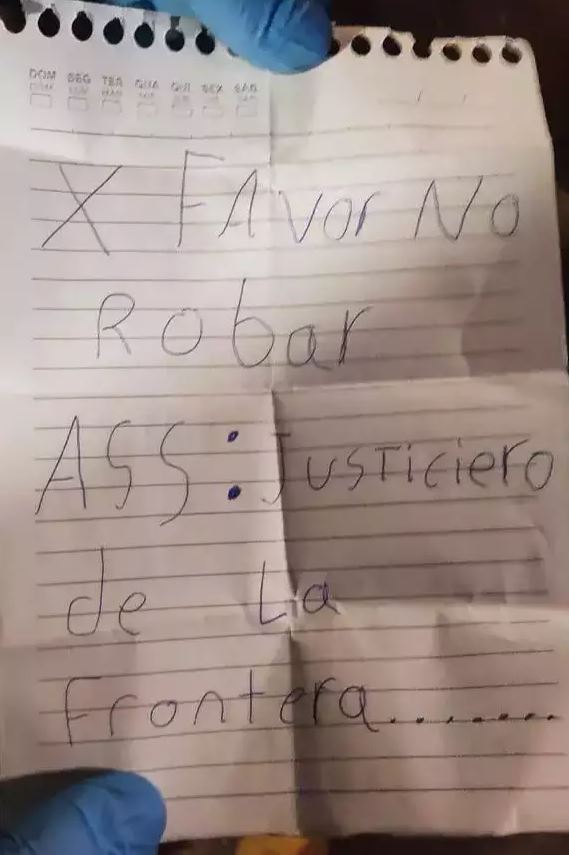 DOM SEG TER QUA QUI SEX SAB
X FAvor No
Robar
ASS: Justiciero
de La
Frontera.........